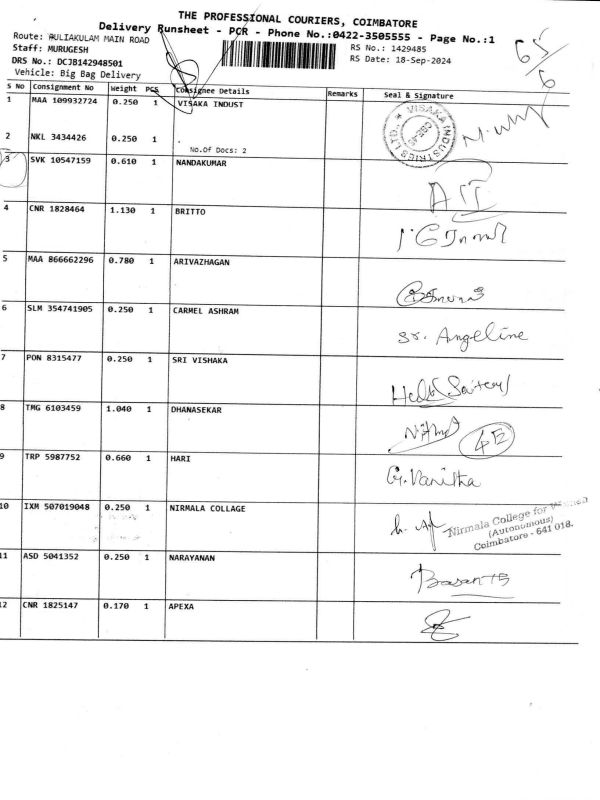 THE PROFESSIONAL COURIERS, COIMBATORE
Delivery Runsheet - PCR - Phone No.:0422-3505555 - Page No.:1
Route: PULIAKULAM MAIN ROAD
RS No.: 1429485
Staff: MURUGESH
RS Date: 18-Sep-2024
DRS No.: DCJB142948501
Vehicle: Big Bag Delivery
65
6
S No Consignment No Weight PCS Consignee Details Remarks Seal & Signature
1 MAA 109932724 0.250 1 VISAKA INDUST
VISAKA INDUSTRIES LTD.
2 NKL 3434426 0.250 1
No.Of Docs: 2
3 SVK 10547159 0.610 1 NANDAKUMAR
4 CNR 1828464 1.130 1 BRITTO
5 MAA 866662296 0.780 1 ARIVAZHAGAN
6 SLM 354741905 0.250 1 CARMEL ASHRAM
Sr. Angeline
7 PON 8315477 0.250 1 SRI VISHAKA
8 TMG 6103459 1.040 1 DHANASEKAR
9 TRP 5987752 0.660 1 HARI
G. Vanitha
10 IXM 507019048 0.250 1 NIRMALA COLLAGE
Nirmala College for Women
(Autonomous)
Coimbatore - 641 018.
11 ASD 5041352 0.250 1 NARAYANAN
12 CNR 1825147 0.170 1 APEXA